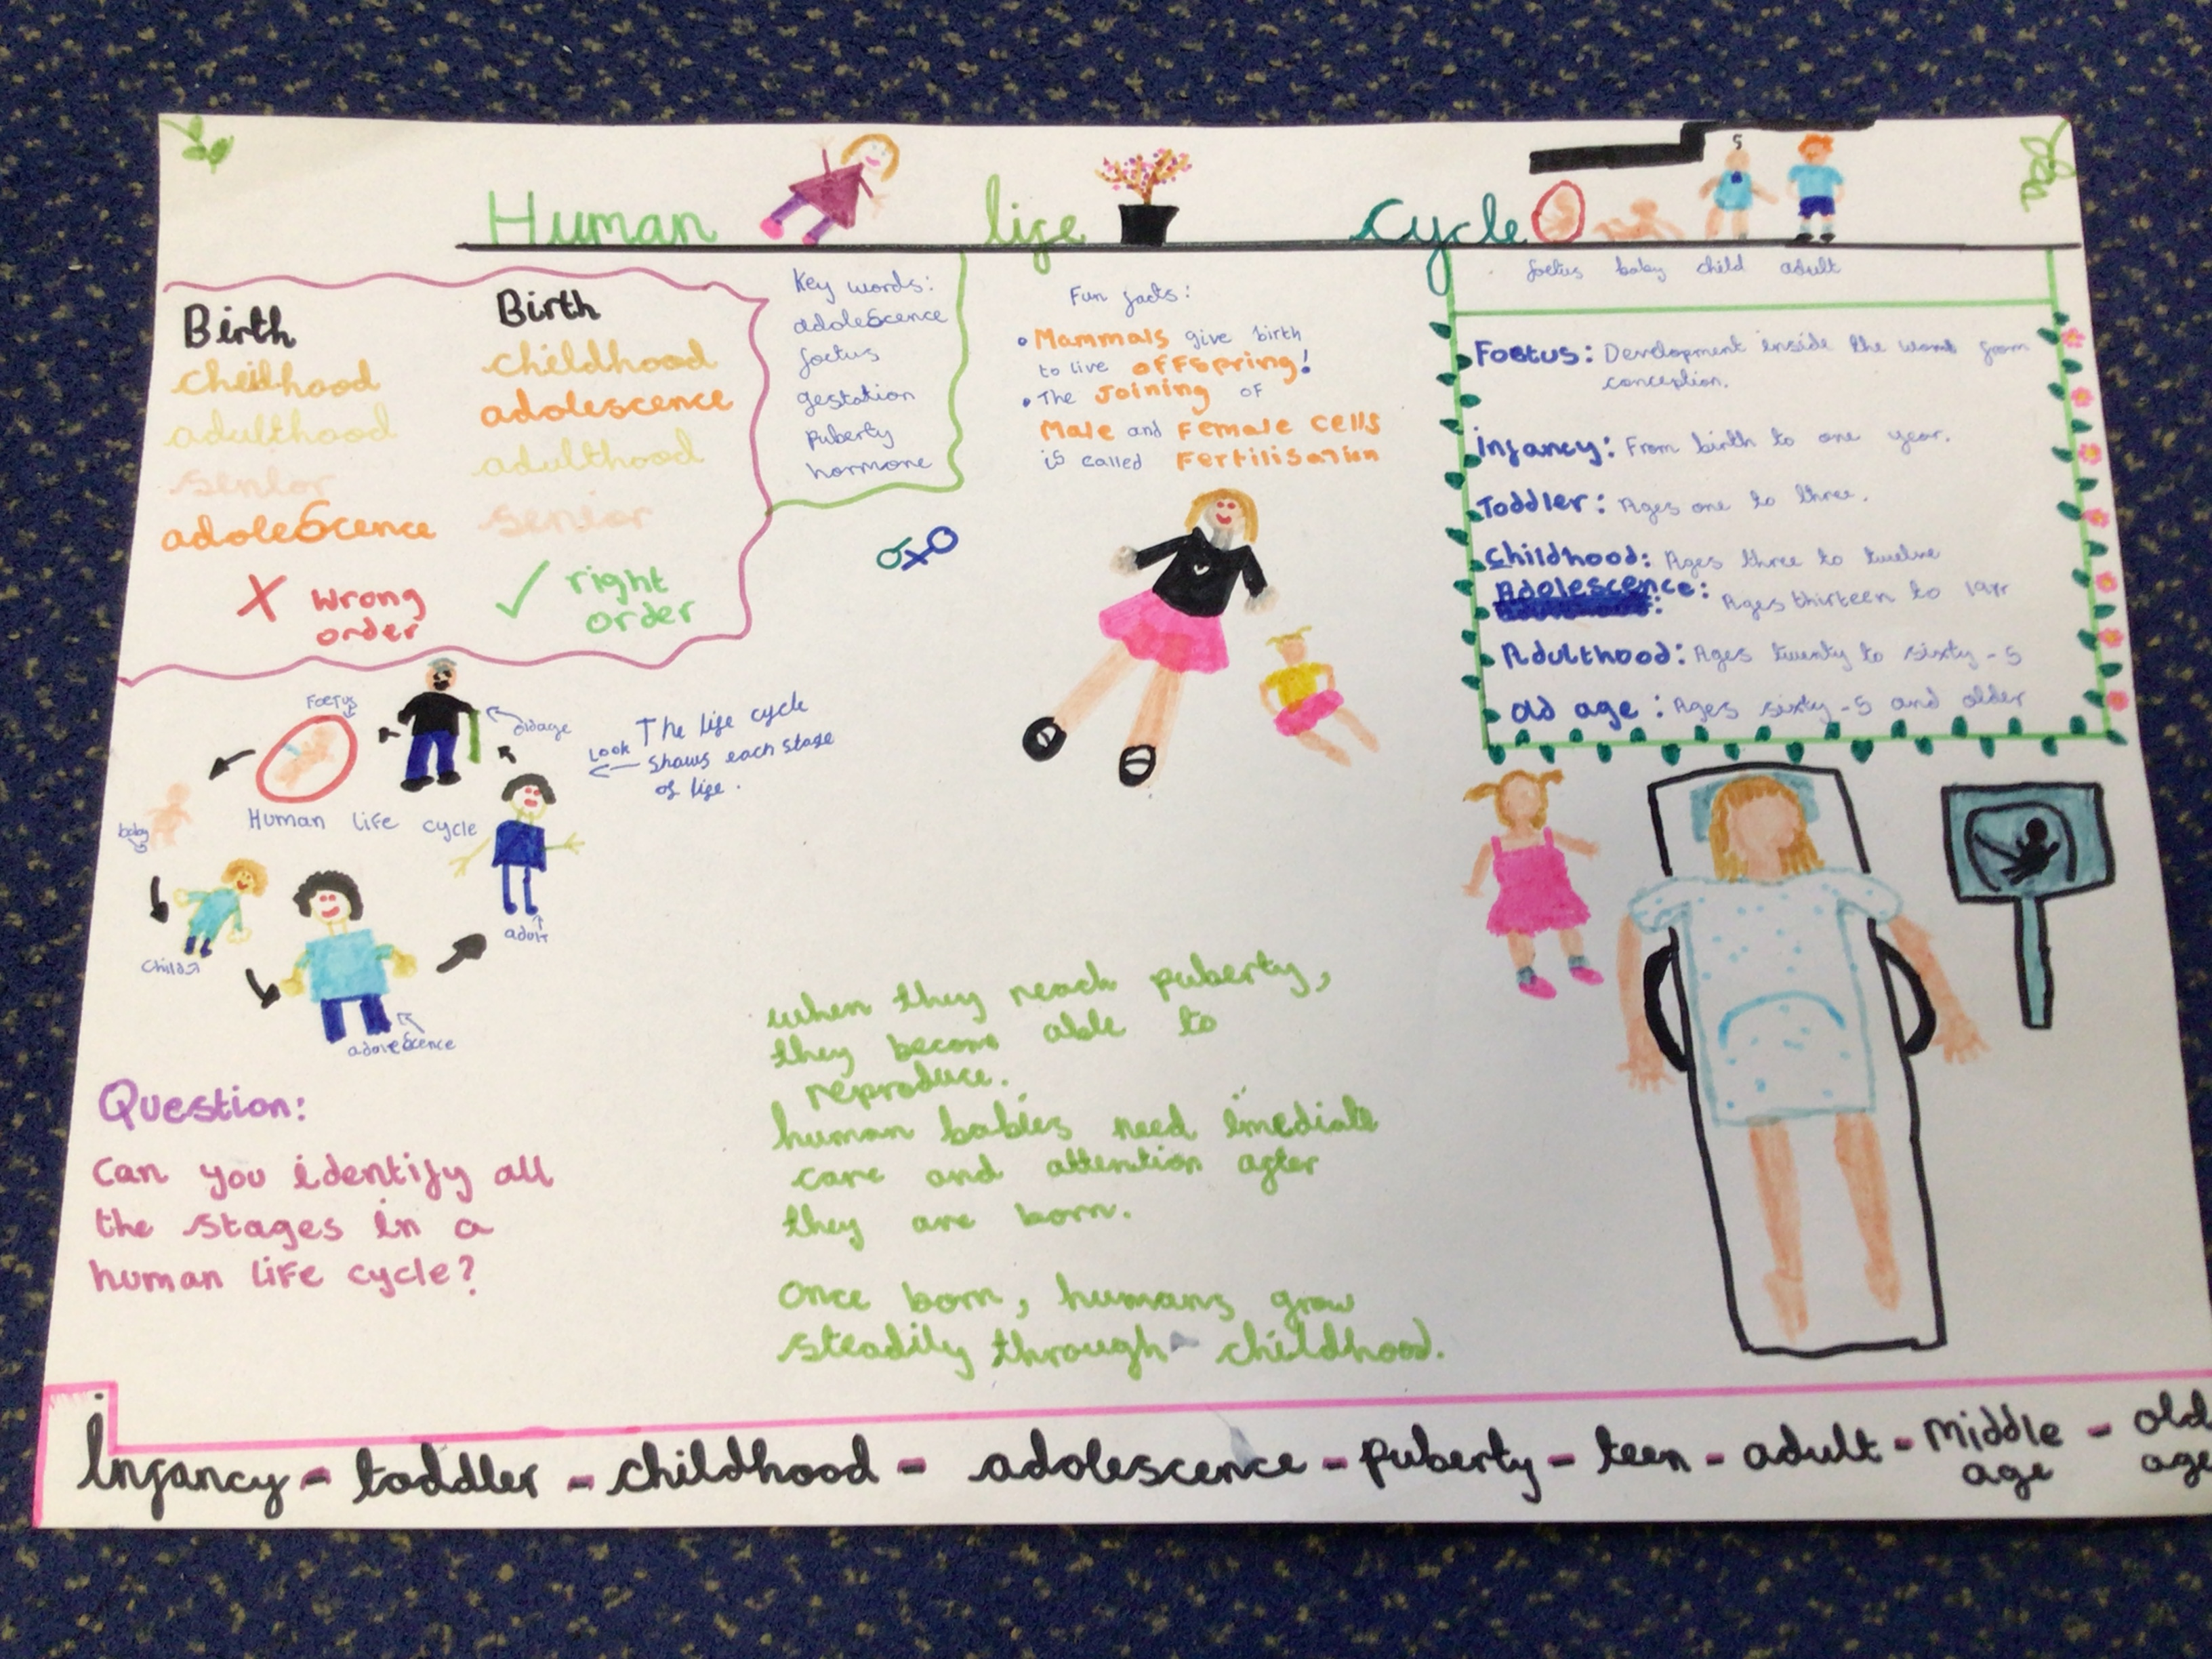 Human life cycle
foetus baby child adult
Birth
childhood
adulthood
senior
adolescence
X wrong
order
Birth
childhood
adolescence
adulthood
senior
✓ right
order
Key words:
adolescence
foetus
gestation
puberty
hormone
Fun facts:
• Mammals give birth
to live offspring!
• The Joining of
Male and Female cells
is called Fertilisation
Foetus: Development inside the womb from
conception.
Infancy: From birth to one year.
Toddler: Ages one to three.
Childhood: Ages three to twelve
Adolescence: Ages thirteen to 19
Adulthood: Ages twenty to sixty-5
old age: Ages sixty-5 and older
Foetus
oldage
baby
Human life cycle
child
adolescence
adult
Look The life cycle
shows each stage
of life.
Question:
Can you identify all
the stages in a
human life cycle?
when they reach puberty,
they become able to
reproduce.
human babies need imediate
care and attention after
they are born.
Once born, humans grow
steadily through childhood.
Infancy - toddler - childhood - adolescence - puberty - teen - adult - Middle age - old age